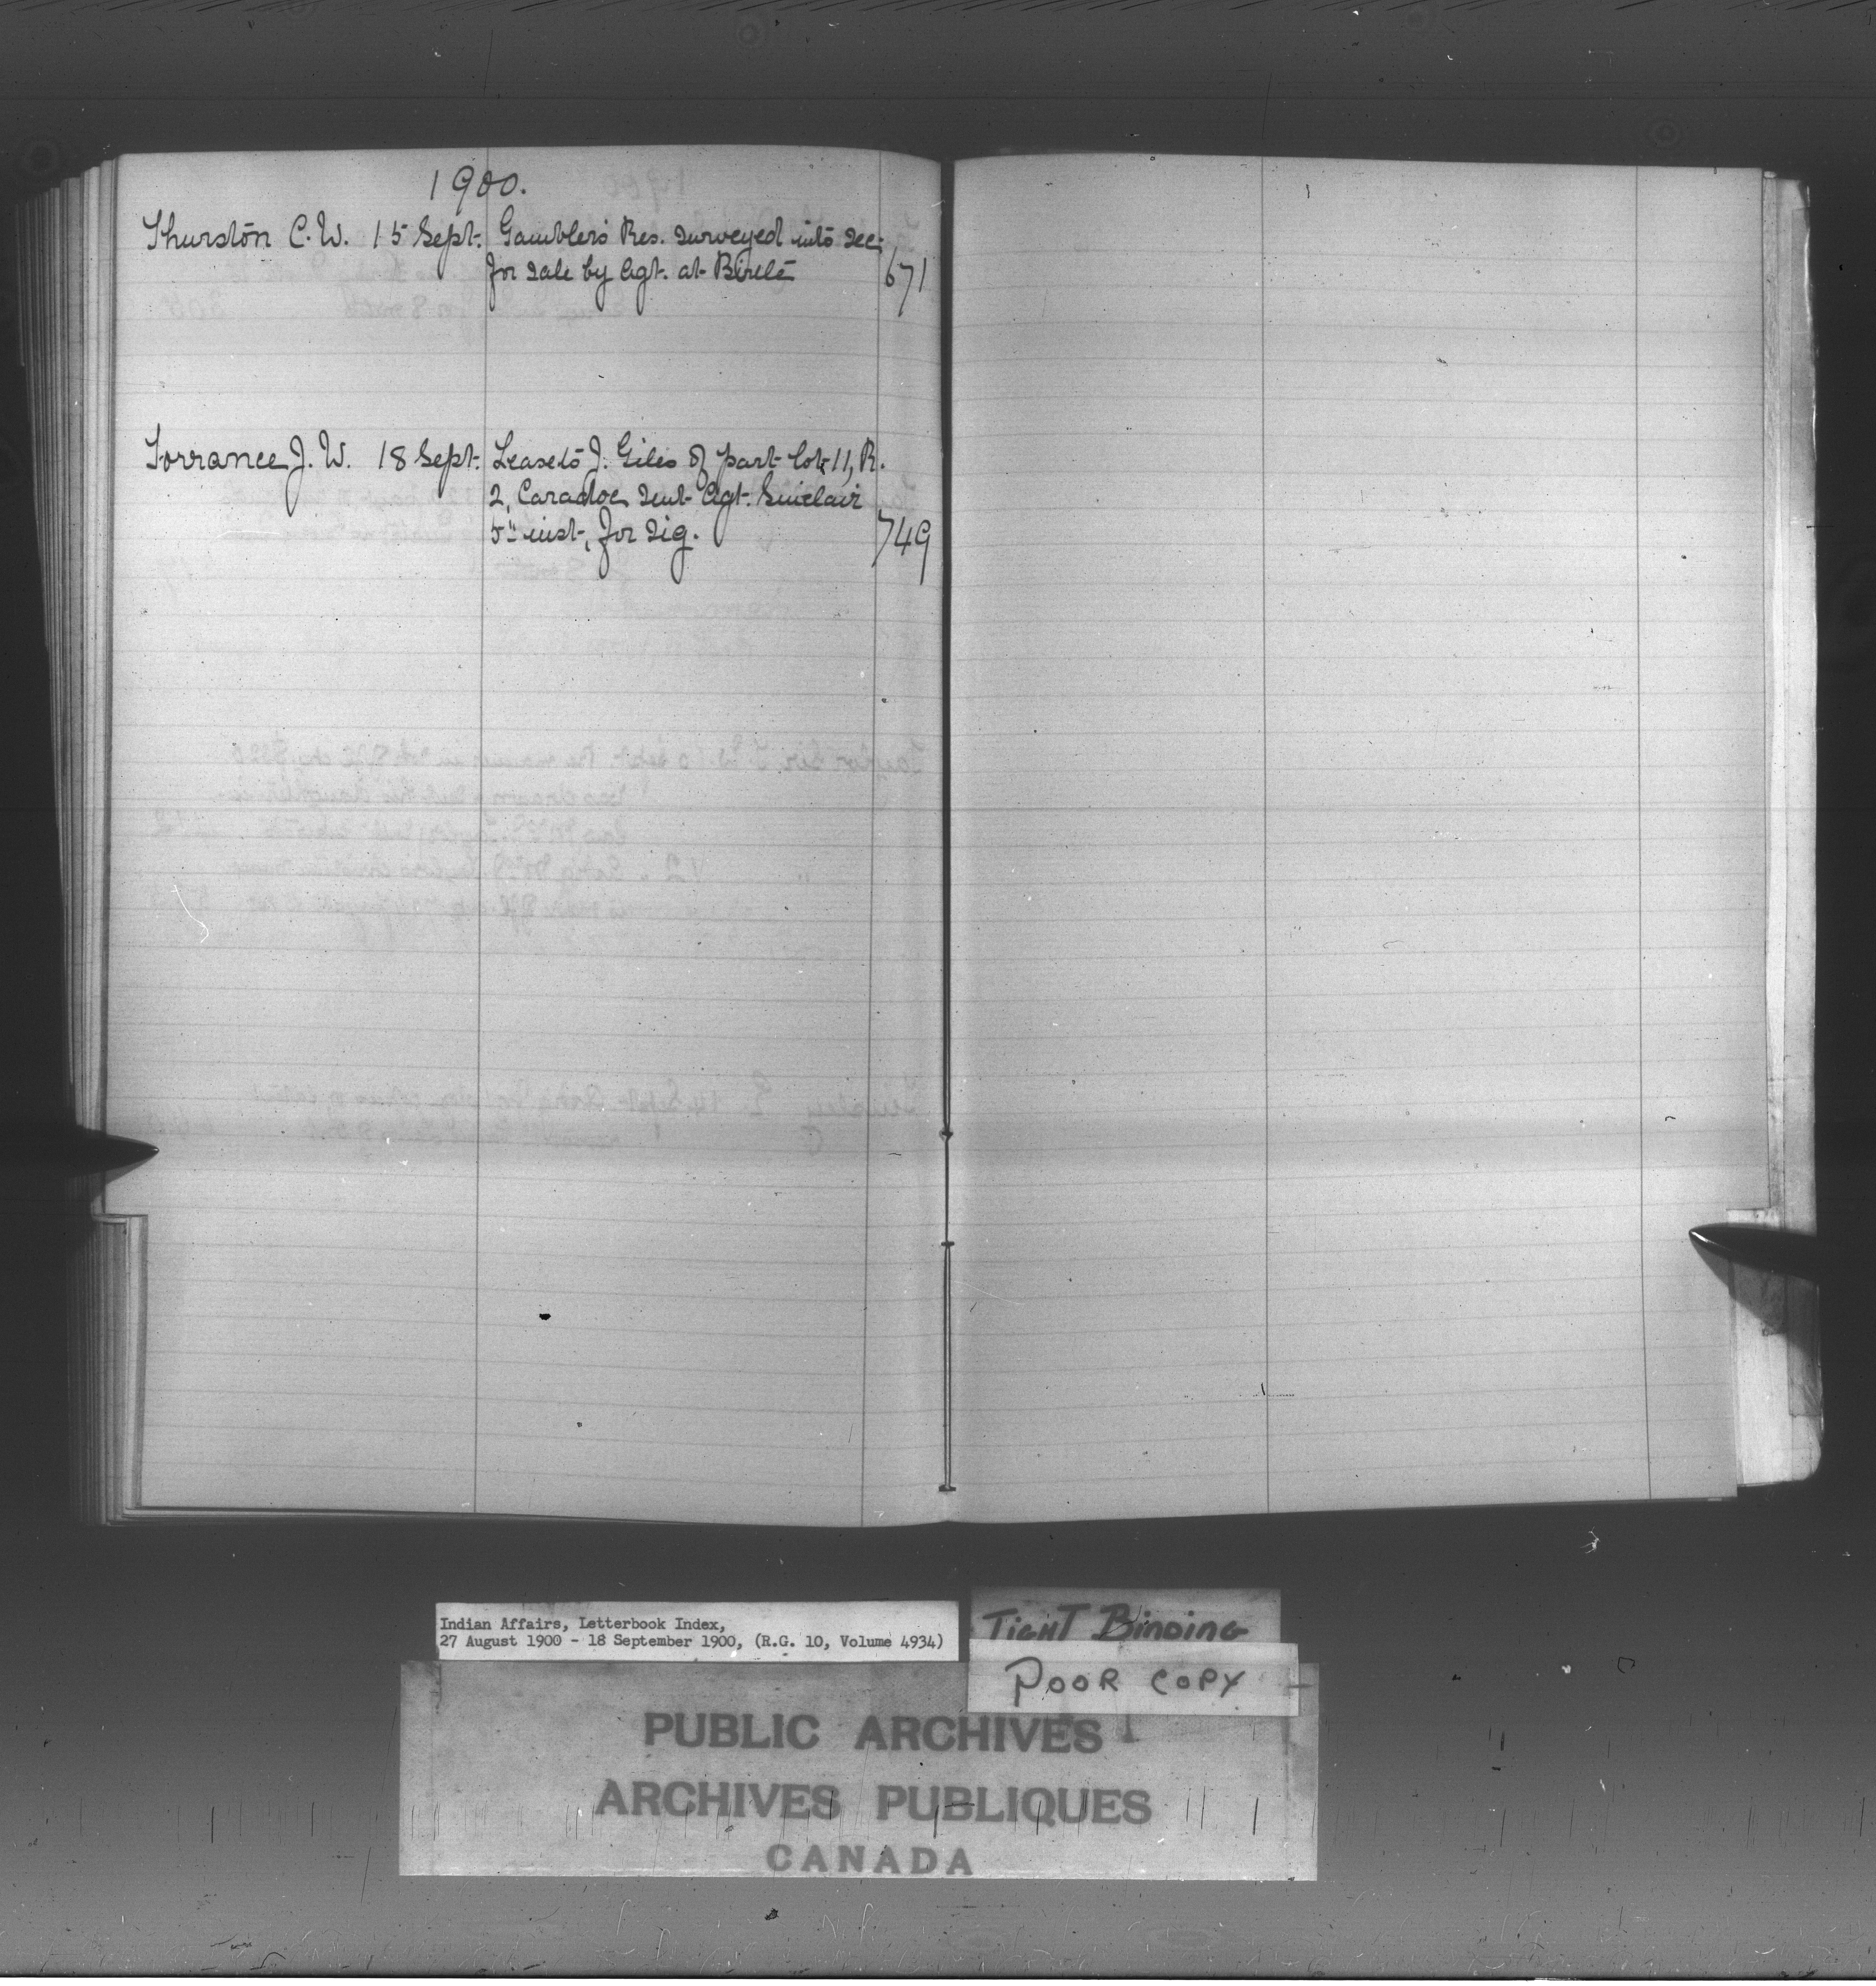 1900.
Thurston C. W. 15 Sept. Gambler's Res. surveyed into sec.
for sale by Agt. at Birtle 671
Torrance J. W. 18 Sept. Lease to J. Giles of part lot 11, R.
2, Caradoc sent Agt. Sinclair
5" inst, for sig. 749
Indian Affairs, Letterbook Index,
27 August 1900 - 18 September 1900, (R.G. 10, Volume 4934)
TIGHT BINDING
POOR COPY
PUBLIC ARCHIVES
ARCHIVES PUBLIQUES
CANADA